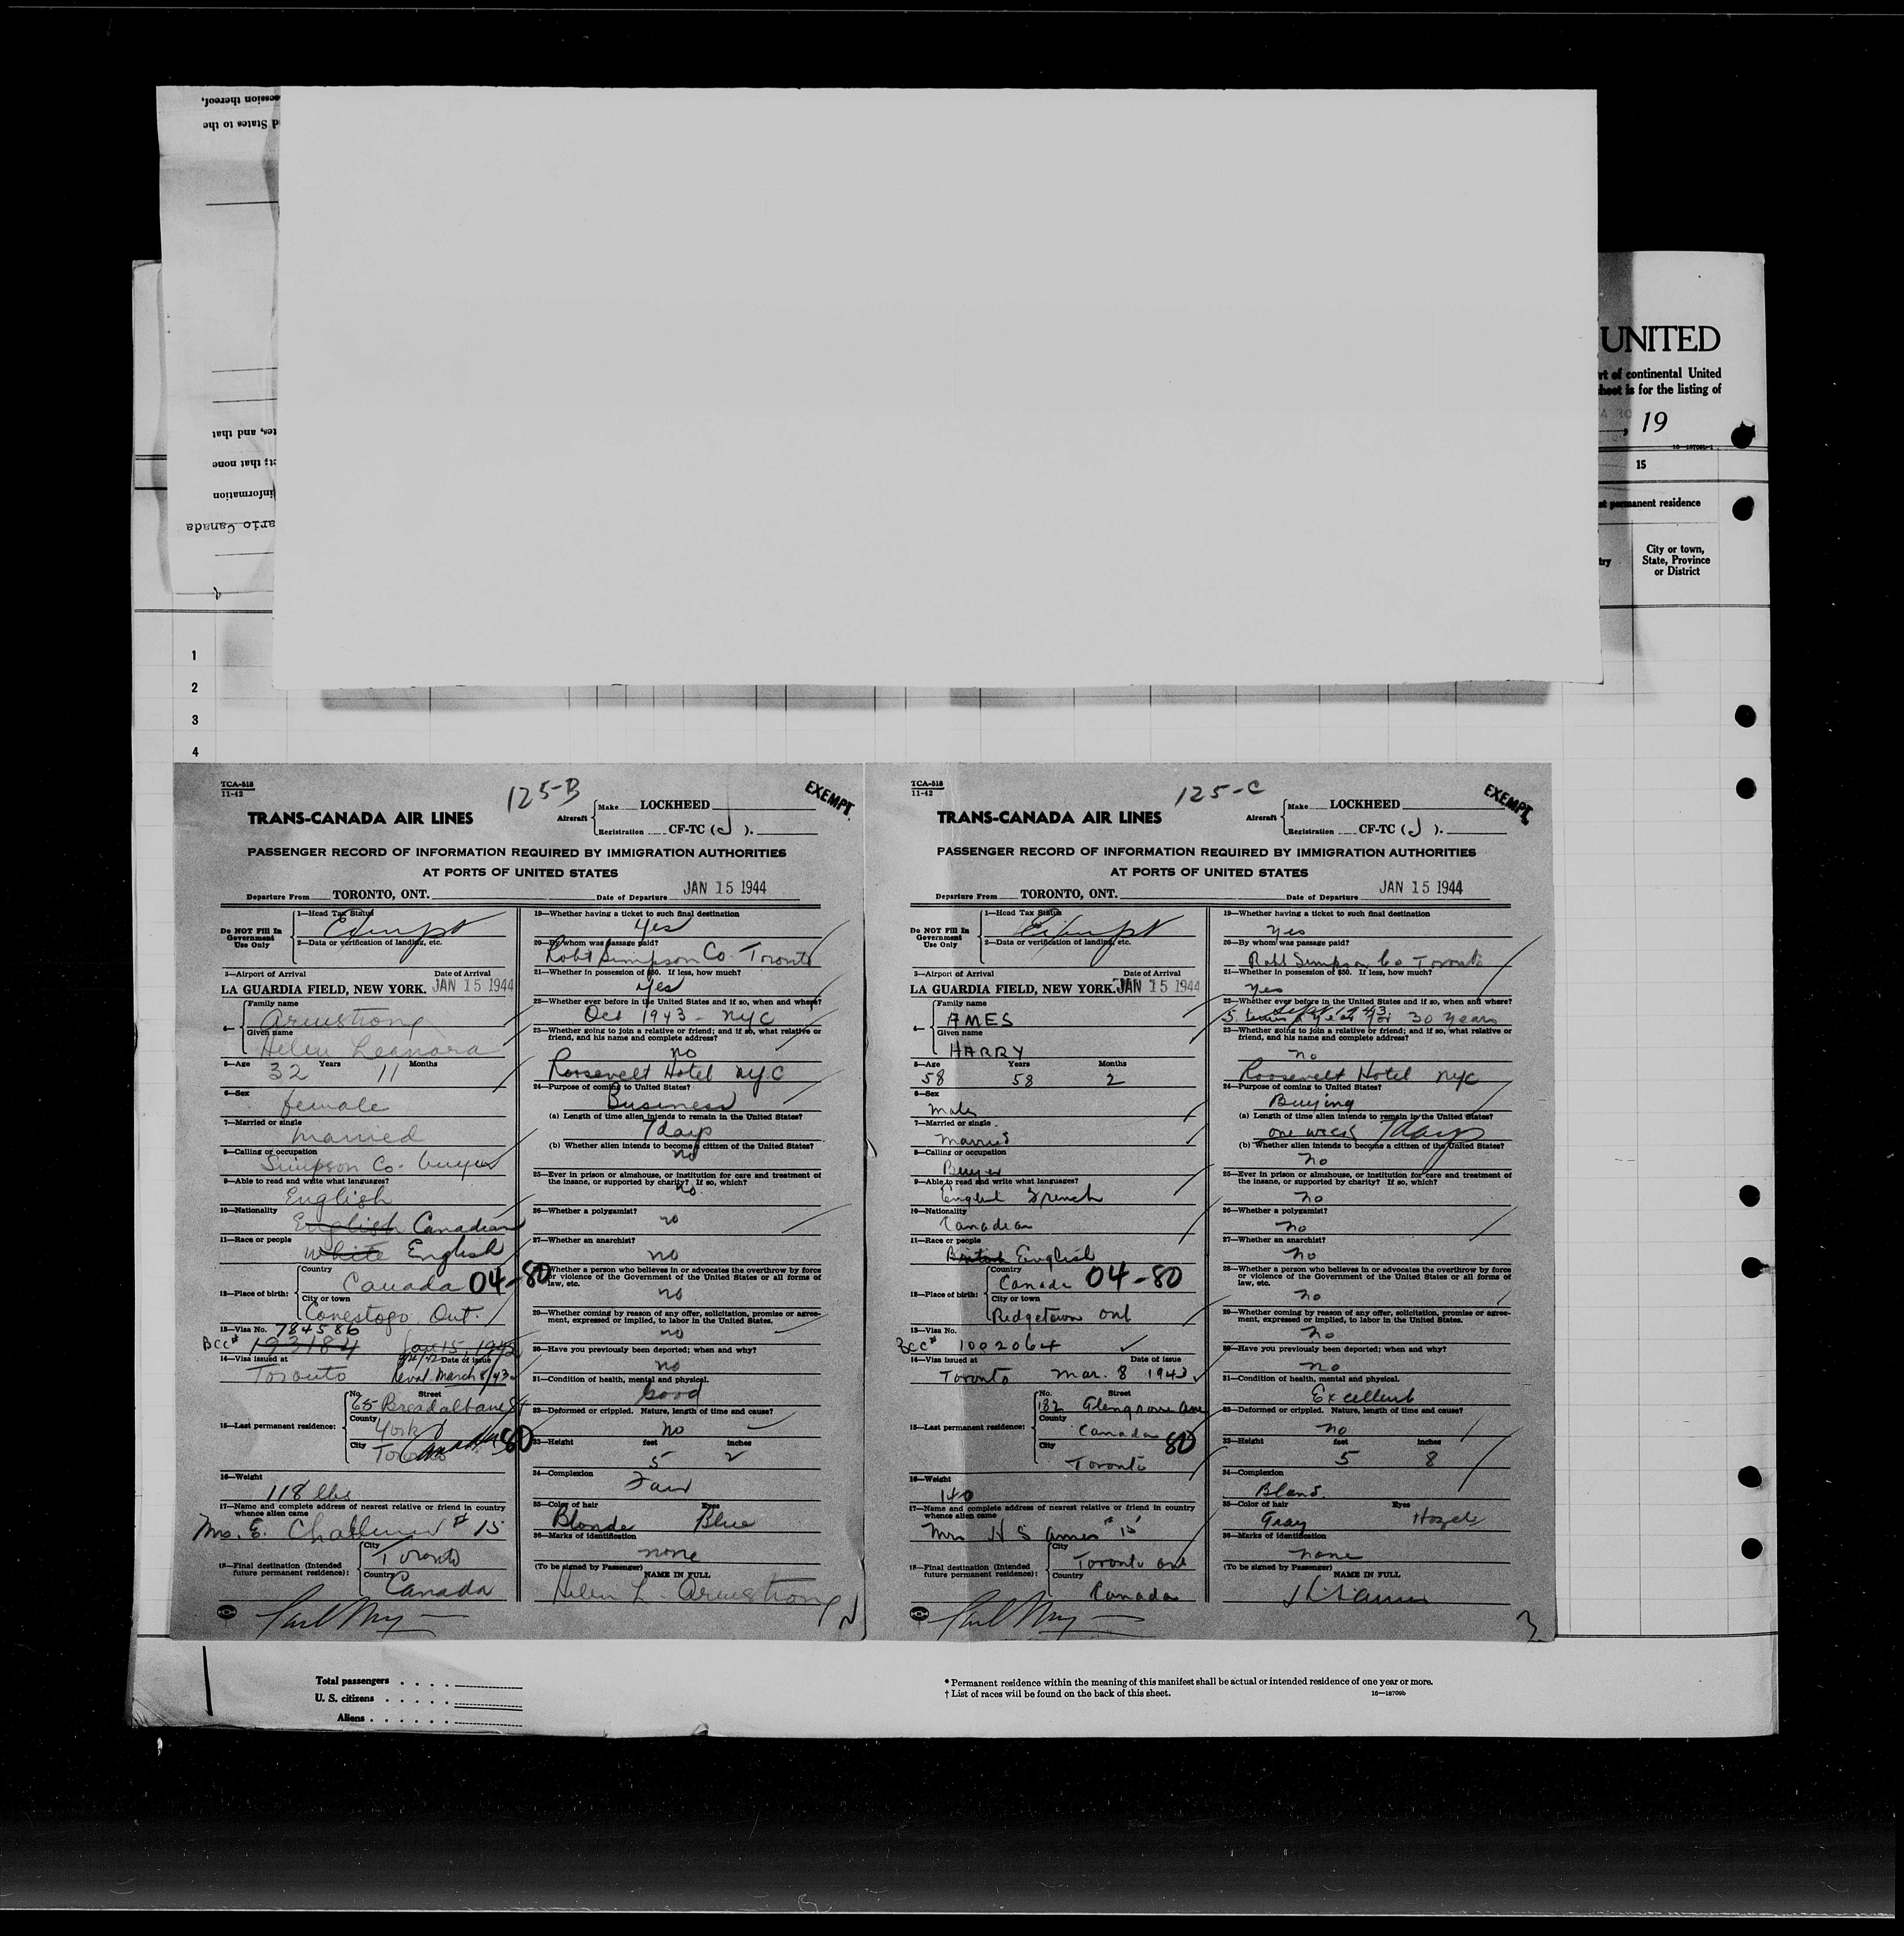 UNITED
rt of continental United
heet is for the listing of
, 19
15
permanent residence
City or town,
State, Province
or District
try
ccession thereof,
d States to the
tes, and that
t; that none
information
ario Canada
1
2
3
4
TCA-518
11-42
125-B
EXEMPT
TRANS-CANADA AIR LINES
Aircraft
Make LOCKHEED
Registration CF-TC (J).
PASSENGER RECORD OF INFORMATION REQUIRED BY IMMIGRATION AUTHORITIES
AT PORTS OF UNITED STATES
Departure From TORONTO, ONT. Date of Departure JAN 15 1944
Do NOT Fill In
Government
Use Only
1—Head Tax Status
Exempt
2—Data or verification of landing, etc.
3—Airport of Arrival Date of Arrival
LA GUARDIA FIELD, NEW YORK. JAN 15 1944
4—
Family name
Armstrong
Given name
Helen Leanora
5—Age Years Months
32 11
6—Sex
female
7—Married or single
married
8—Calling or occupation
Simpson Co. buyer
9—Able to read and write what languages?
English
10—Nationality
English Canadian
11—Race or people
White English
12—Place of birth:
Country
Canada 04-80
City or town
Conestogo Ont.
13—Visa No. 784586
BCC# 193184 Jan 15, 1942
14—Visa issued at Date of issue
Toronto Reval. March 8/43
15—Last permanent residence:
No. Street
65 Breadalbane St
County
York
City
Toronto Canada 80
16—Weight
118 lbs
17—Name and complete address of nearest relative or friend in country
whence alien came
Mrs. E. # 15
18—Final destination (Intended
future permanent residence):
City
Toronto
Country
Canada
19—Whether having a ticket to such final destination
Yes
20—By whom was passage paid?
Robt Simpson Co. Toronto
21—Whether in possession of $50. If less, how much?
Yes
22—Whether ever before in the United States and if so, when and where?
Oct 1943 - NYC
23—Whether going to join a relative or friend; and if so, what relative or
friend, and his name and complete address?
no
Roosevelt Hotel NY.C
24—Purpose of coming to United States?
Business
(a) Length of time alien intends to remain in the United States?
7 days
(b) Whether alien intends to become a citizen of the United States?
no
25—Ever in prison or almshouse, or institution for care and treatment of
the insane, or supported by charity? If so, which?
no.
26—Whether a polygamist?
no
27—Whether an anarchist?
no
Whether a person who believes in or advocates the overthrow by force
or violence of the Government of the United States or all forms of
law, etc.
no
29—Whether coming by reason of any offer, solicitation, promise or agree-
ment, expressed or implied, to labor in the United States.
no
30—Have you previously been deported; when and why?
no
31—Condition of health, mental and physical.
Good
32—Deformed or crippled. Nature, length of time and cause?
No
33—Height feet inches
5 2
34—Complexion
Fair
35—Color of hair Eyes
Blonde Blue
36—Marks of identification
none
(To be signed by Passenger) NAME IN FULL
Helen L. Armstrong
2
TCA-518
11-42
125-C
EXEMPT
TRANS-CANADA AIR LINES
Aircraft
Make LOCKHEED
Registration CF-TC (J).
PASSENGER RECORD OF INFORMATION REQUIRED BY IMMIGRATION AUTHORITIES
AT PORTS OF UNITED STATES
Departure From TORONTO, ONT. Date of Departure JAN 15 1944
Do NOT Fill In
Government
Use Only
1—Head Tax Status
Exempt
2—Data or verification of landing, etc.
3—Airport of Arrival Date of Arrival
LA GUARDIA FIELD, NEW YORK. JAN 15 1944
4—
Family name
AMES
Given name
HARRY
5—Age Years Months
58 58 2
6—Sex
Male
7—Married or single
Married
8—Calling or occupation
Buyer
9—Able to read and write what languages?
English French
10—Nationality
Canadian
11—Race or people
British English
12—Place of birth:
Country
Canada 04-80
City or town
Ridgetown Ont
13—Visa No.
BCC# 1002064
14—Visa issued at Date of issue
Toronto Mar. 8 1943
15—Last permanent residence:
No. Street
182 Glengrove Ave
County
Canada
City 80
Toronto
16—Weight
140
17—Name and complete address of nearest relative or friend in country
whence alien came
Mrs H S Ames # 15
18—Final destination (Intended
future permanent residence):
City
Toronto Ont
Country
Canada
19—Whether having a ticket to such final destination
Yes
20—By whom was passage paid?
Robt Simpson Co Toronto
21—Whether in possession of $50. If less, how much?
Yes
22—Whether ever before in the United States and if so, when and where?
Sept 1943
5 times a year for 30 years
23—Whether going to join a relative or friend; and if so, what relative or
friend, and his name and complete address?
no
Roosevelt Hotel NYC
24—Purpose of coming to United States?
Buying
(a) Length of time alien intends to remain in the United States?
one week 7 days
(b) Whether alien intends to become a citizen of the United States?
no
25—Ever in prison or almshouse, or institution for care and treatment of
the insane, or supported by charity? If so, which?
no
26—Whether a polygamist?
no
27—Whether an anarchist?
no
28—Whether a person who believes in or advocates the overthrow by force
or violence of the Government of the United States or all forms of
law, etc.
no
29—Whether coming by reason of any offer, solicitation, promise or agree-
ment, expressed or implied, to labor in the United States.
no
30—Have you previously been deported; when and why?
no
31—Condition of health, mental and physical.
Excellent
32—Deformed or crippled. Nature, length of time and cause?
no
33—Height feet inches
5 8
34—Complexion
Blond.
35—Color of hair Eyes
Gray Hazel
36—Marks of identification
none
(To be signed by Passenger) NAME IN FULL
3
Total passengers
U. S. citizens
Aliens
* Permanent residence within the meaning of this manifest shall be actual or intended residence of one year or more.
† List of races will be found on the back of this sheet. 16—18709b